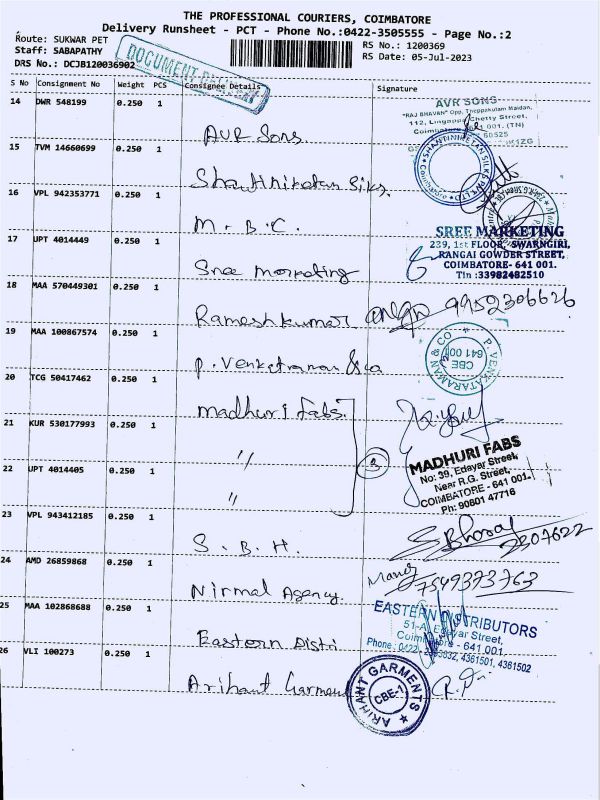 THE PROFESSIONAL COURIERS, COIMBATORE
Delivery Runsheet - PCT - Phone No.:0422-3505555 - Page No.:2
Route: SUKWAR PET
RS No.: 1200369
Staff: SABAPATHY
RS Date: 05-Jul-2023
DRS No.: DCJB120036902
DOCUMENT
S No Consignment No Weight PCS Consignee Details Signature
14 DWR 548199 0.250 1
AVR Sons
AVR SONS
"RAJ BHAVAN" Opp. Theppakulam Maidan,
112, Lingappa Chetty Street,
Coimbatore 001. (TN)
15 TVM 14660699 0.250 1
Shanthiniketan Silks.
SHANTHINIKETAN SILKS PVT LTD
Coimbatore
16 VPL 942353771 0.250 1
M.B.C.
17 UPT 4014449 0.250 1
Sree Marketing
SREE MARKETING
239, 1st FLOOR, SWARNGIRI,
RANGAI GOWDER STREET,
COIMBATORE- 641 001.
Tin :33982482510
18 MAA 570449301 0.250 1
Rameshkumar
9952306626
19 MAA 100867574 0.250 1
P. Venketraman & co
P. VENKATARAMAN & CO
CBE
641 001
20 TCG 50417462 0.250 1
Madhuri Fabs.
21 KUR 530177993 0.250 1
"
3
22 UPT 4014405 0.250 1
"
MADHURI FABS
No: 39, Edayar Street,
Near R.G. Street,
COIMBATORE - 641 001.
Ph: 90801 47716
23 VPL 943412185 0.250 1
S.B.H.
24 AMD 26859868 0.250 1
Nirmal Agency.
7549373763
25 MAA 102868688 0.250 1
Eastern Distri
EASTERN DISTRIBUTORS
51-A, Edayar Street,
Coimbatore - 641 001.
4361501, 4361502
26 VLI 100273 0.250 1
Arihant Garment
ARIHANT GARMENTS
CBE-1